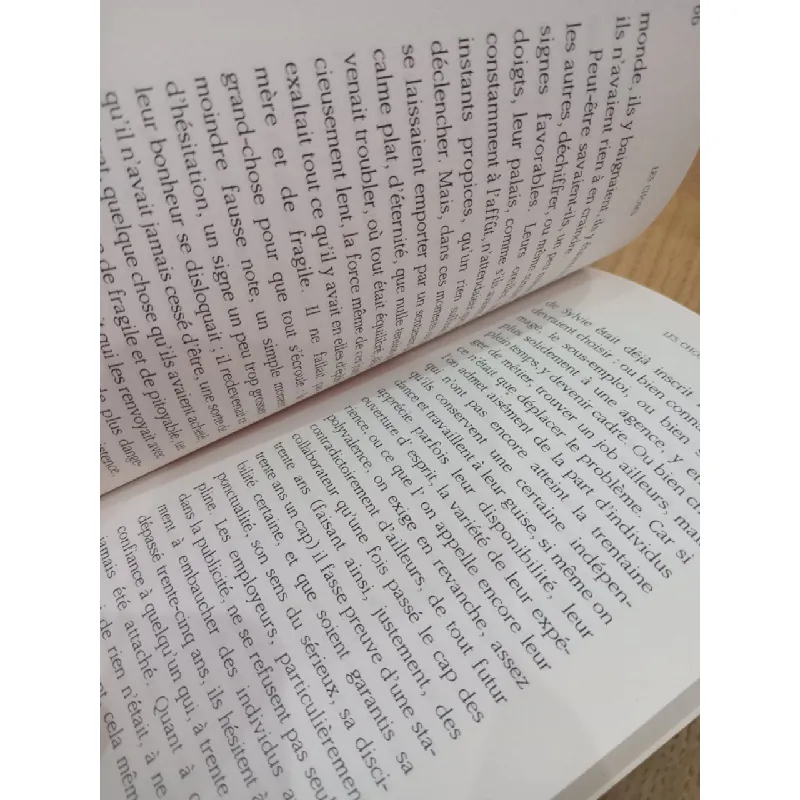 66
LES CHOSES
monde, ils y baignaient, ils y
ils n'avaient rien à en craindre.
Peut-être savaient-ils, un peu
les autres, déchiffrer, ou même
signes favorables. Leurs
doigts, leur palais, comme s'ils
constamment à l'affût, n'attendaient
instants propices, qu'un rien
déclencher. Mais, dans ces moments
se laissaient emporter par un sentiment
calme plat, d'éternité, que nulle tension
venait troubler, où tout était équilibré,
cieusement lent, la force même de ces
exaltait tout ce qu'il y avait en elles d'éphé-
mère et de fragile. Il ne fallait pas
grand-chose pour que tout s'écroule : la
moindre fausse note, un simple moment
d'hésitation, un signe un peu trop grossier,
leur bonheur se disloquait ; il redevenait ce
qu'il n'avait jamais cessé d'être, une sorte de
quelque chose qu'ils avaient acheté,
de fragile et de pitoyable,
qui les renvoyait avec
de plus dange-
LES CHO
de Sylvie était déjà inscrit
devraient choisir : ou bien
mage, le sous-emploi, ou bien
plus solidement à une agence, y
plein temps, y devenir cadre. Ou bien
ger de métier, trouver un job ailleurs, mais
ce n'était que déplacer le problème. Car si
l'on admet aisément de la part d'individus
qui n'ont pas encore atteint la trentaine
qu'ils conservent une certaine indépen-
dance et travaillent à leur guise, si même on
apprécie parfois leur disponibilité, leur
ouverture d'esprit, la variété de leur expé-
rience, ou ce que l'on appelle encore leur
polyvalence, on exige en revanche, assez
contradictoirement d'ailleurs, de tout futur
collaborateur qu'une fois passé le cap des
trente ans (faisant ainsi, justement, des
trente ans un cap) il fasse preuve d'une sta-
bilité certaine, et que soient garantis sa
ponctualité, son sens du sérieux, sa disci-
pline. Les employeurs, particulièrement
dans la publicité, ne se refusent pas seul
ment à embaucher des individus a
dépassé trente-cinq ans, ils hésitent à
confiance à quelqu'un qui, à trente
jamais été attaché. Quant à
de rien n'était, à ne
cela mêm